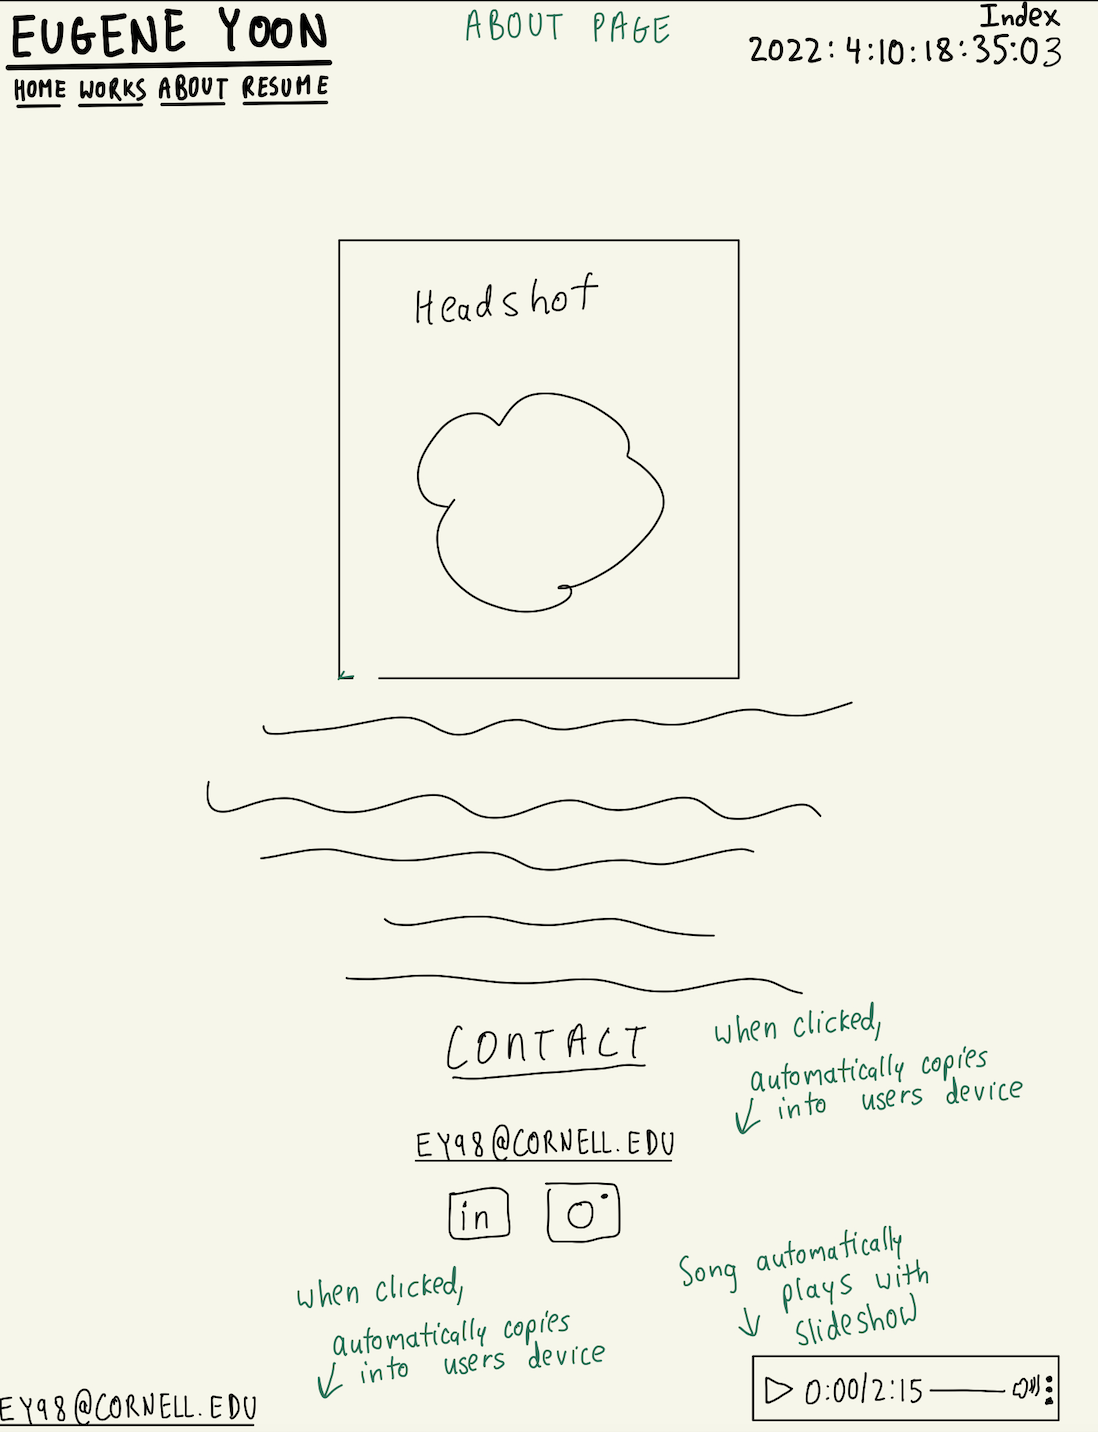 EUGENE YOON
HOME WORKS ABOUT RESUME
ABOUT PAGE
Index
2022:4:10:18:35:03
Headshot
CONTACT
when clicked,
automatically copies
into users device
EY98@CORNELL.EDU
in
when clicked,
automatically copies
into users device
EY98@CORNELL.EDU
Song automatically
plays with
slideshow
0:00/2:15